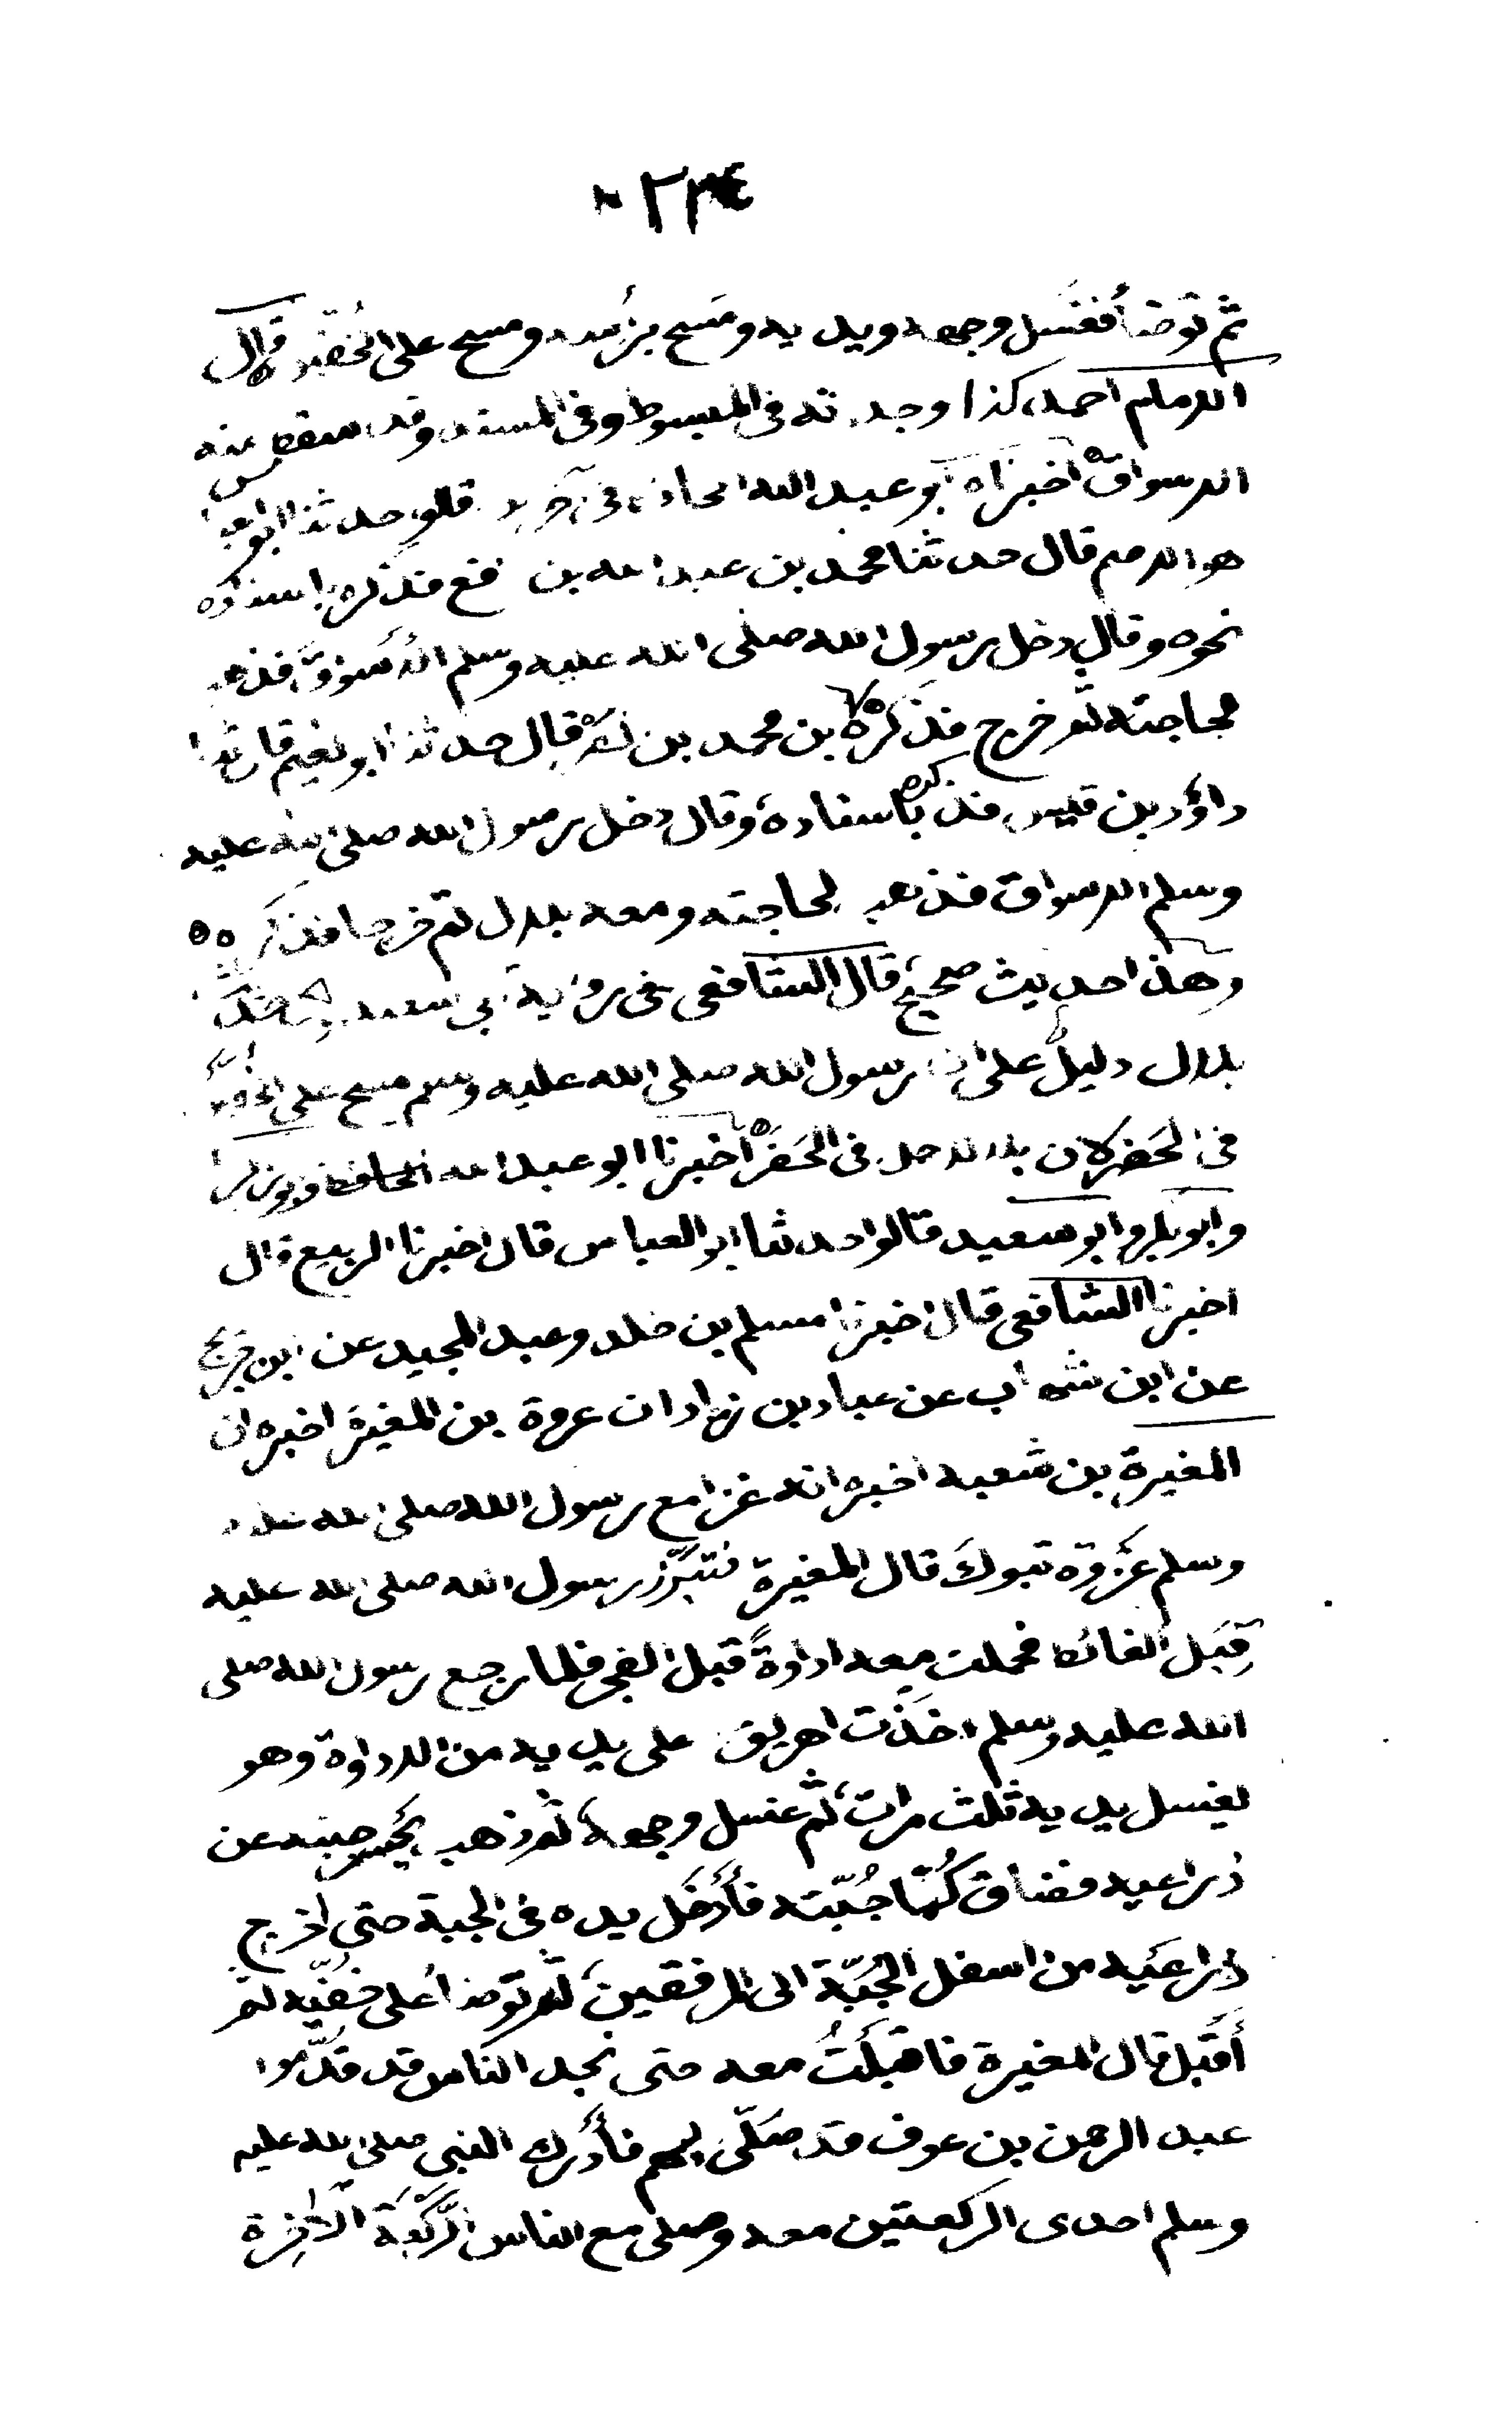 ٢٣٤
ثم توضأ فغسل وجهه ويديه ومسح برأسه ومسح على الخفين قال
الامام احمد كذا وجدته فى المبسوط وفى المسند وقد سقط عنه
الاسواق اخبرناه ابو عبد الله الحافظ فى آخرين قالوا حدثنا ابو العباس
هو الاصم قال حدثنا محمد بن عبد الله بن فذكره باسناده
نحوه وقال دخل رسول الله صلى الله عليه وسلم الاسواق فذهب
لحاجته ثم خرج فذكره بن محمد بن قال حدثنا ابو نعيم قال ثنا
داؤد بن قيس فذكره باسناده وقال دخل رسول الله صلى الله عليه
وسلم الاسواق فذهب لحاجته ومعه بلال ثم خرجا فذكره
وهذا حديث صحيح قال الشافعى فى رواية ابى سعيد
بلال دليل على ان رسول الله صلى الله عليه وسلم مسح على الخفين
فى الحضر لان بلالا حمل فى الحضر اخبرنا ابو عبد الله الحافظ وابو زكريا
وابو بكر وابو سعيد قالوا حدثنا ابو العباس قال اخبرنا الربيع قال
اخبرنا الشافعى قال اخبرنا مسلم بن خلد وعبد المجيد عن ابن جريج
عن ابن شهاب عن عباد بن زياد ان عروة بن المغيرة اخبره ان
المغيرة بن شعبه اخبره انه غزا مع رسول الله صلى الله عليه
وسلم غَزوة تبوكَ قال المغيرة فتبرَّز رسول الله صلى الله عليه
قِبَل الغائط فحملت معه اداوةً قبل الفجر فلما رجع رسول الله صلى
الله عليه وسلم اخذت اهريق على يديه من الاداوة وهو
يغسل يديه ثلث مرات ثم غسل وجهه ثم ذهب يحسر جبته عن
ذراعيه فضاق كُمّا جُبّته فأدخَل يده فى الجبة حتى اخرج
ذراعيه من اسفل الجُبّة الى المرفقين ثم توضأ على خفّيه ثم
أقبَل قال المغيرة فاقبَلتُ معه حتى نجد الناس قد قدّموا
عبد الرحمن بن عوف قد صَلّى بهم فأدرك النبى صلى الله عليه
وسلم احدى الركعتين معه وصلى مع الناس الرَّكعَة الآخِرة